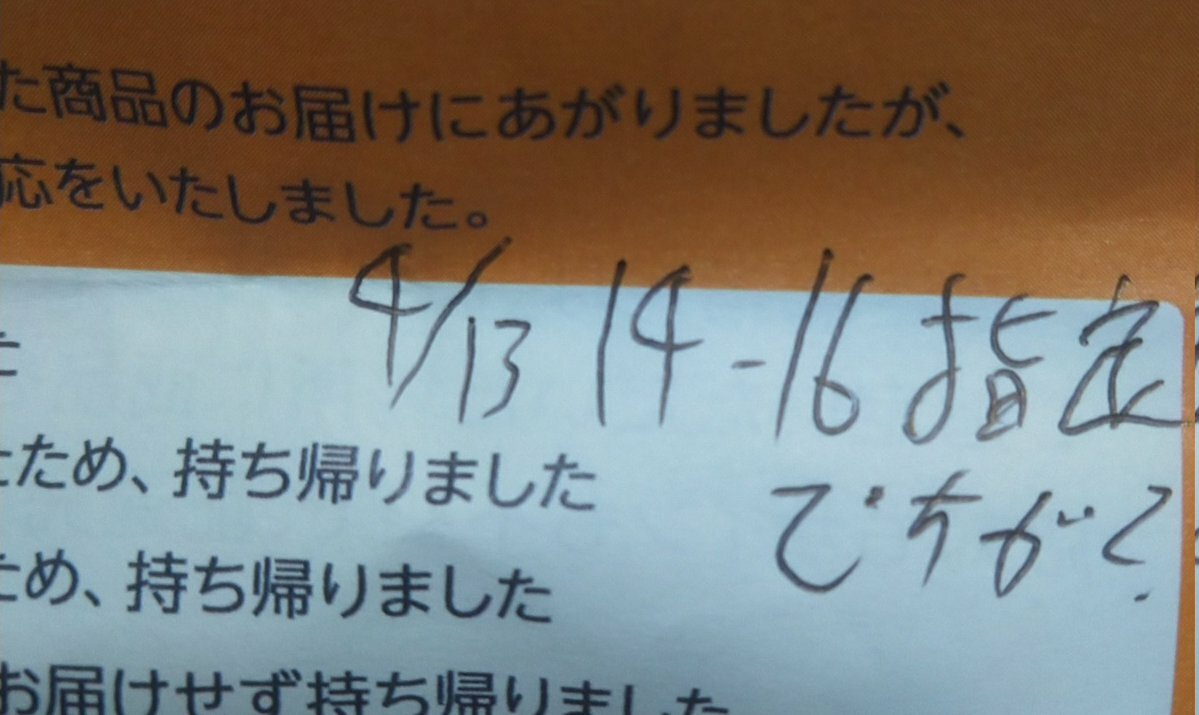 た商品のお届けにあがりましたが、
応をいたしました。
4/13 14-16 指定
た
ため、持ち帰りました
ですが?
ため、持ち帰りました
お届けせず持ち帰りました